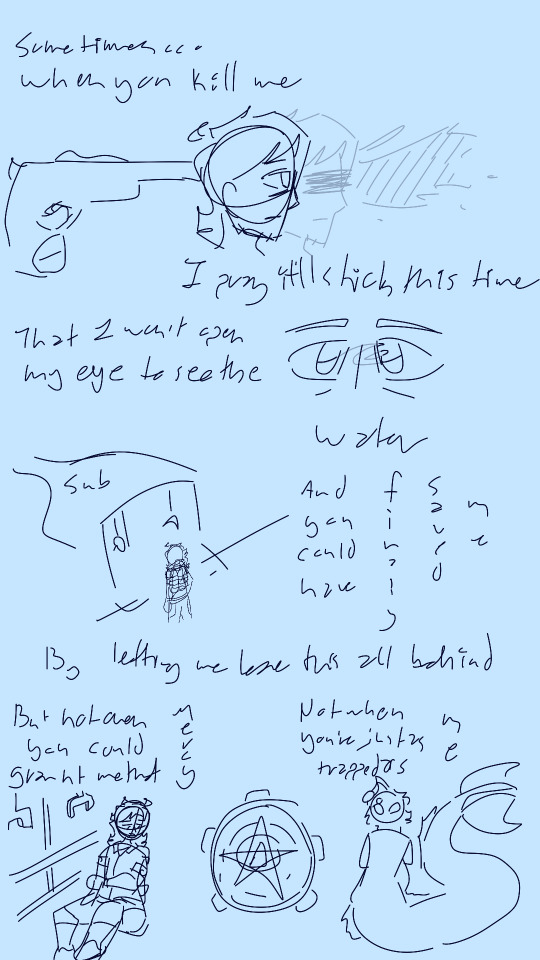 Sometimes...
when you kill me
I pray it'll stick this time
That I won't open
my eye to see the
water
Sub
And
you
could
have
finally
saved
me
By letting me lose this all behind
But not even
you could
grant me that
mercy
Not when
you're just as
trapped as
me